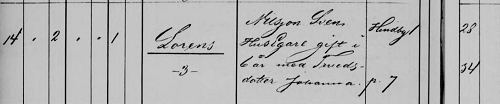 14 " 2 " " 1 Lorens Nilsson Sven Hundby 1 28
Husägare gift i
-3- 6 år med Trueds- 34
dotter Johanna. p. 7